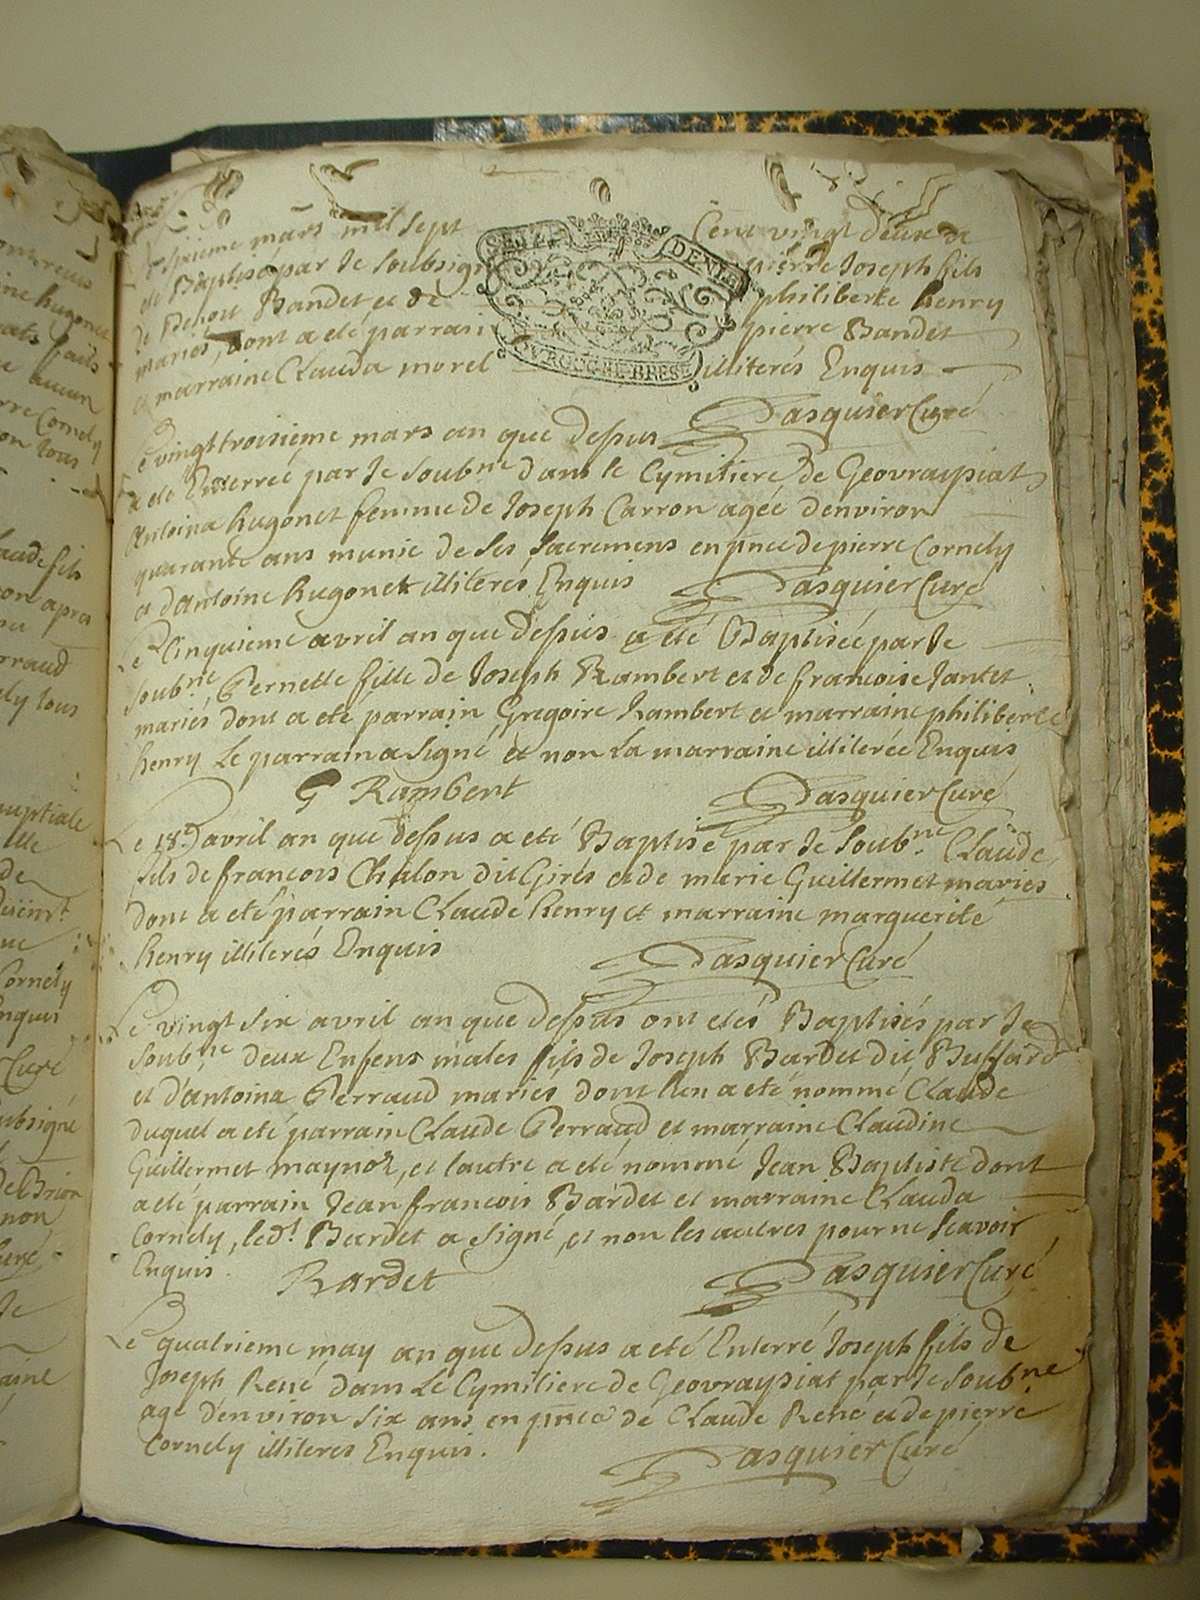 sixieme mars mil sept Cent vingt deux a
eté Baptisé par Je Soubsigné pierre Joseph fils
de Benoit Bandet et de philiberte henry
mariés, dont a eté parrain pierre Bandet
et marraine Clauda morel illiterés Enquis
Pasquier Curé
Le vingt troisieme mars an que dessus
a eté Enterrée par Je Soubne dans le Cymitiere de Geovraypiat
Antoina hugonet femme de Joseph Carron agée denviron
quarante ans munie de ses sacremens en pnce de pierre Cornely
et d'Antoine hugonet illiterés Enquis Pasquier Curé
Le Cinquieme avril an que dessus a eté Baptisée par Je
Soubne Pernette fille de Joseph Rambert et de francoise Jantet
mariés dont a eté parrain Gregoire Rambert et marraine philiberte
henry Le parrain a signé et non La marraine illiterée Enquis
G Rambert Pasquier Curé
Le 18e avril an que dessus a eté Baptisé par Je Soubne Claude
fils de francois Chalon dit Girés et de marie Guillermet mariés
dont a eté parrain Claude henry et marraine marguerite
henry illiterés Enquis Pasquier Curé
Le vingt six avril an que dessus ont etés Baptisés par Je
Soubne deux Enfens males fils de Joseph Bardet dit Buffard
et d'Antoina Perraud mariés dont l'un a eté nommé Claude
duquel a eté parrain Claude Perraud et marraine Claudine
Guillermet maynoz, et lautre a eté nommé Jean Baptiste dont
a eté parrain Jean francois Bardet et marraine Clauda
Cornely, ledt Bardet a signé, et non les autres pour ne scavoir
Enquis. Bardet Pasquier Curé
Le quatrieme may an que dessus a eté Enterré Joseph fils de
Joseph René dans Le Cymitiere de Geovraypiat par Je Soubne
agé d'environ six ans en pnce de Claude René et de pierre
Cornely illiteres Enquis. Pasquier Curé